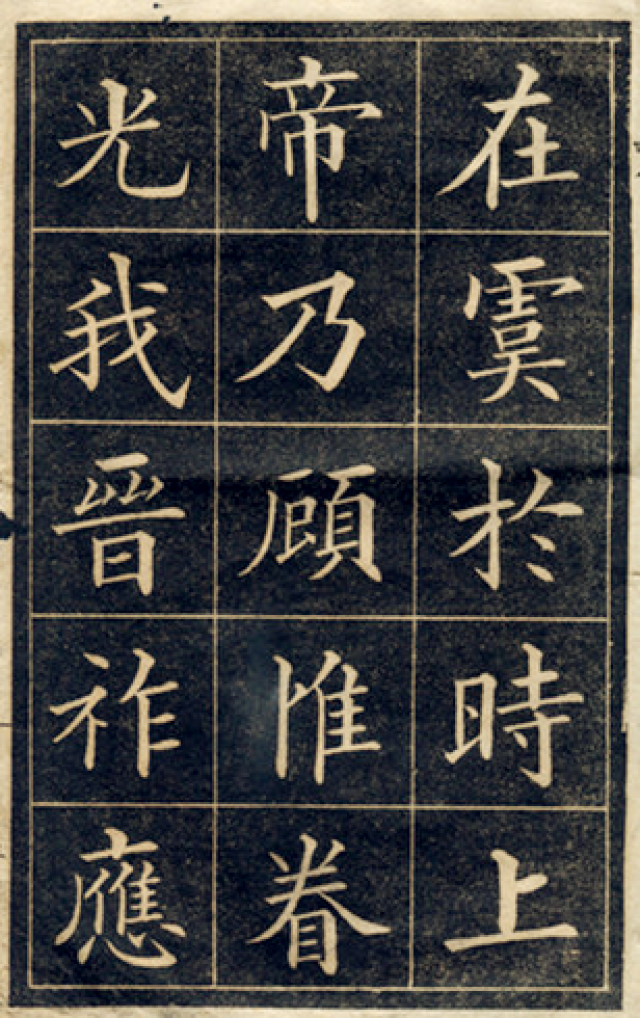 在虞於時上
帝乃顧惟眷
光我晉祚應